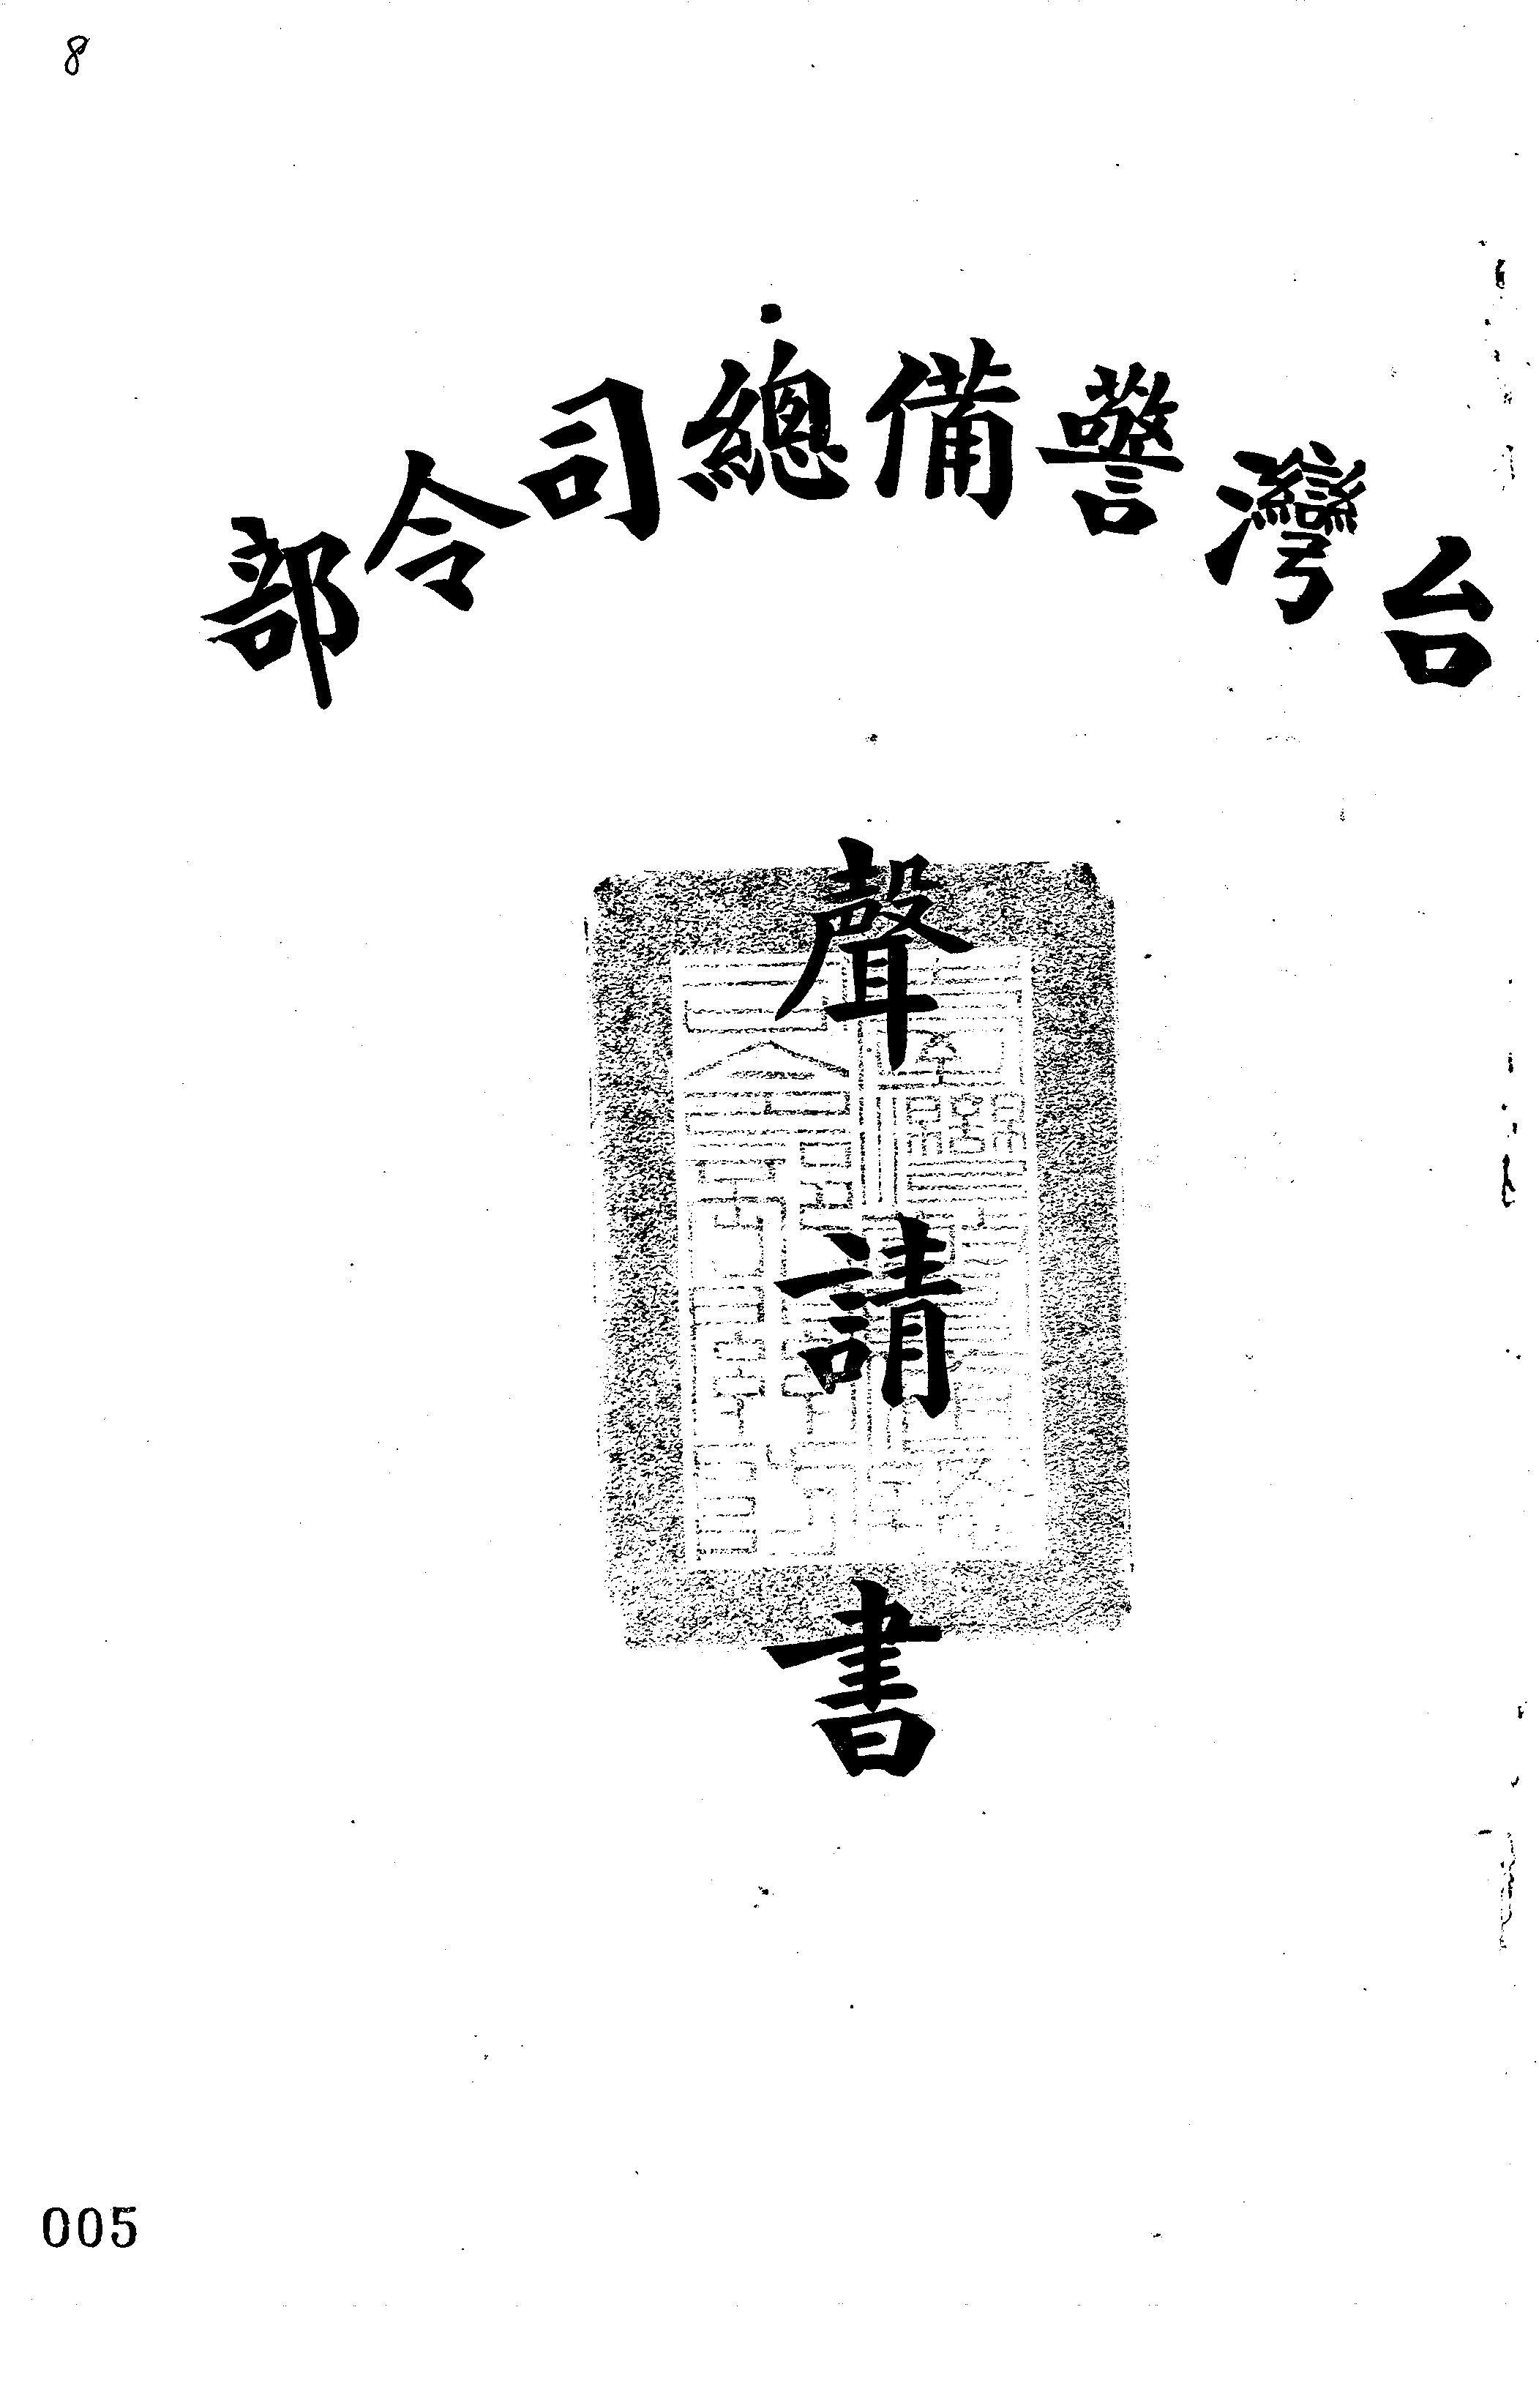 8
台灣警備總司令部
聲請書
005